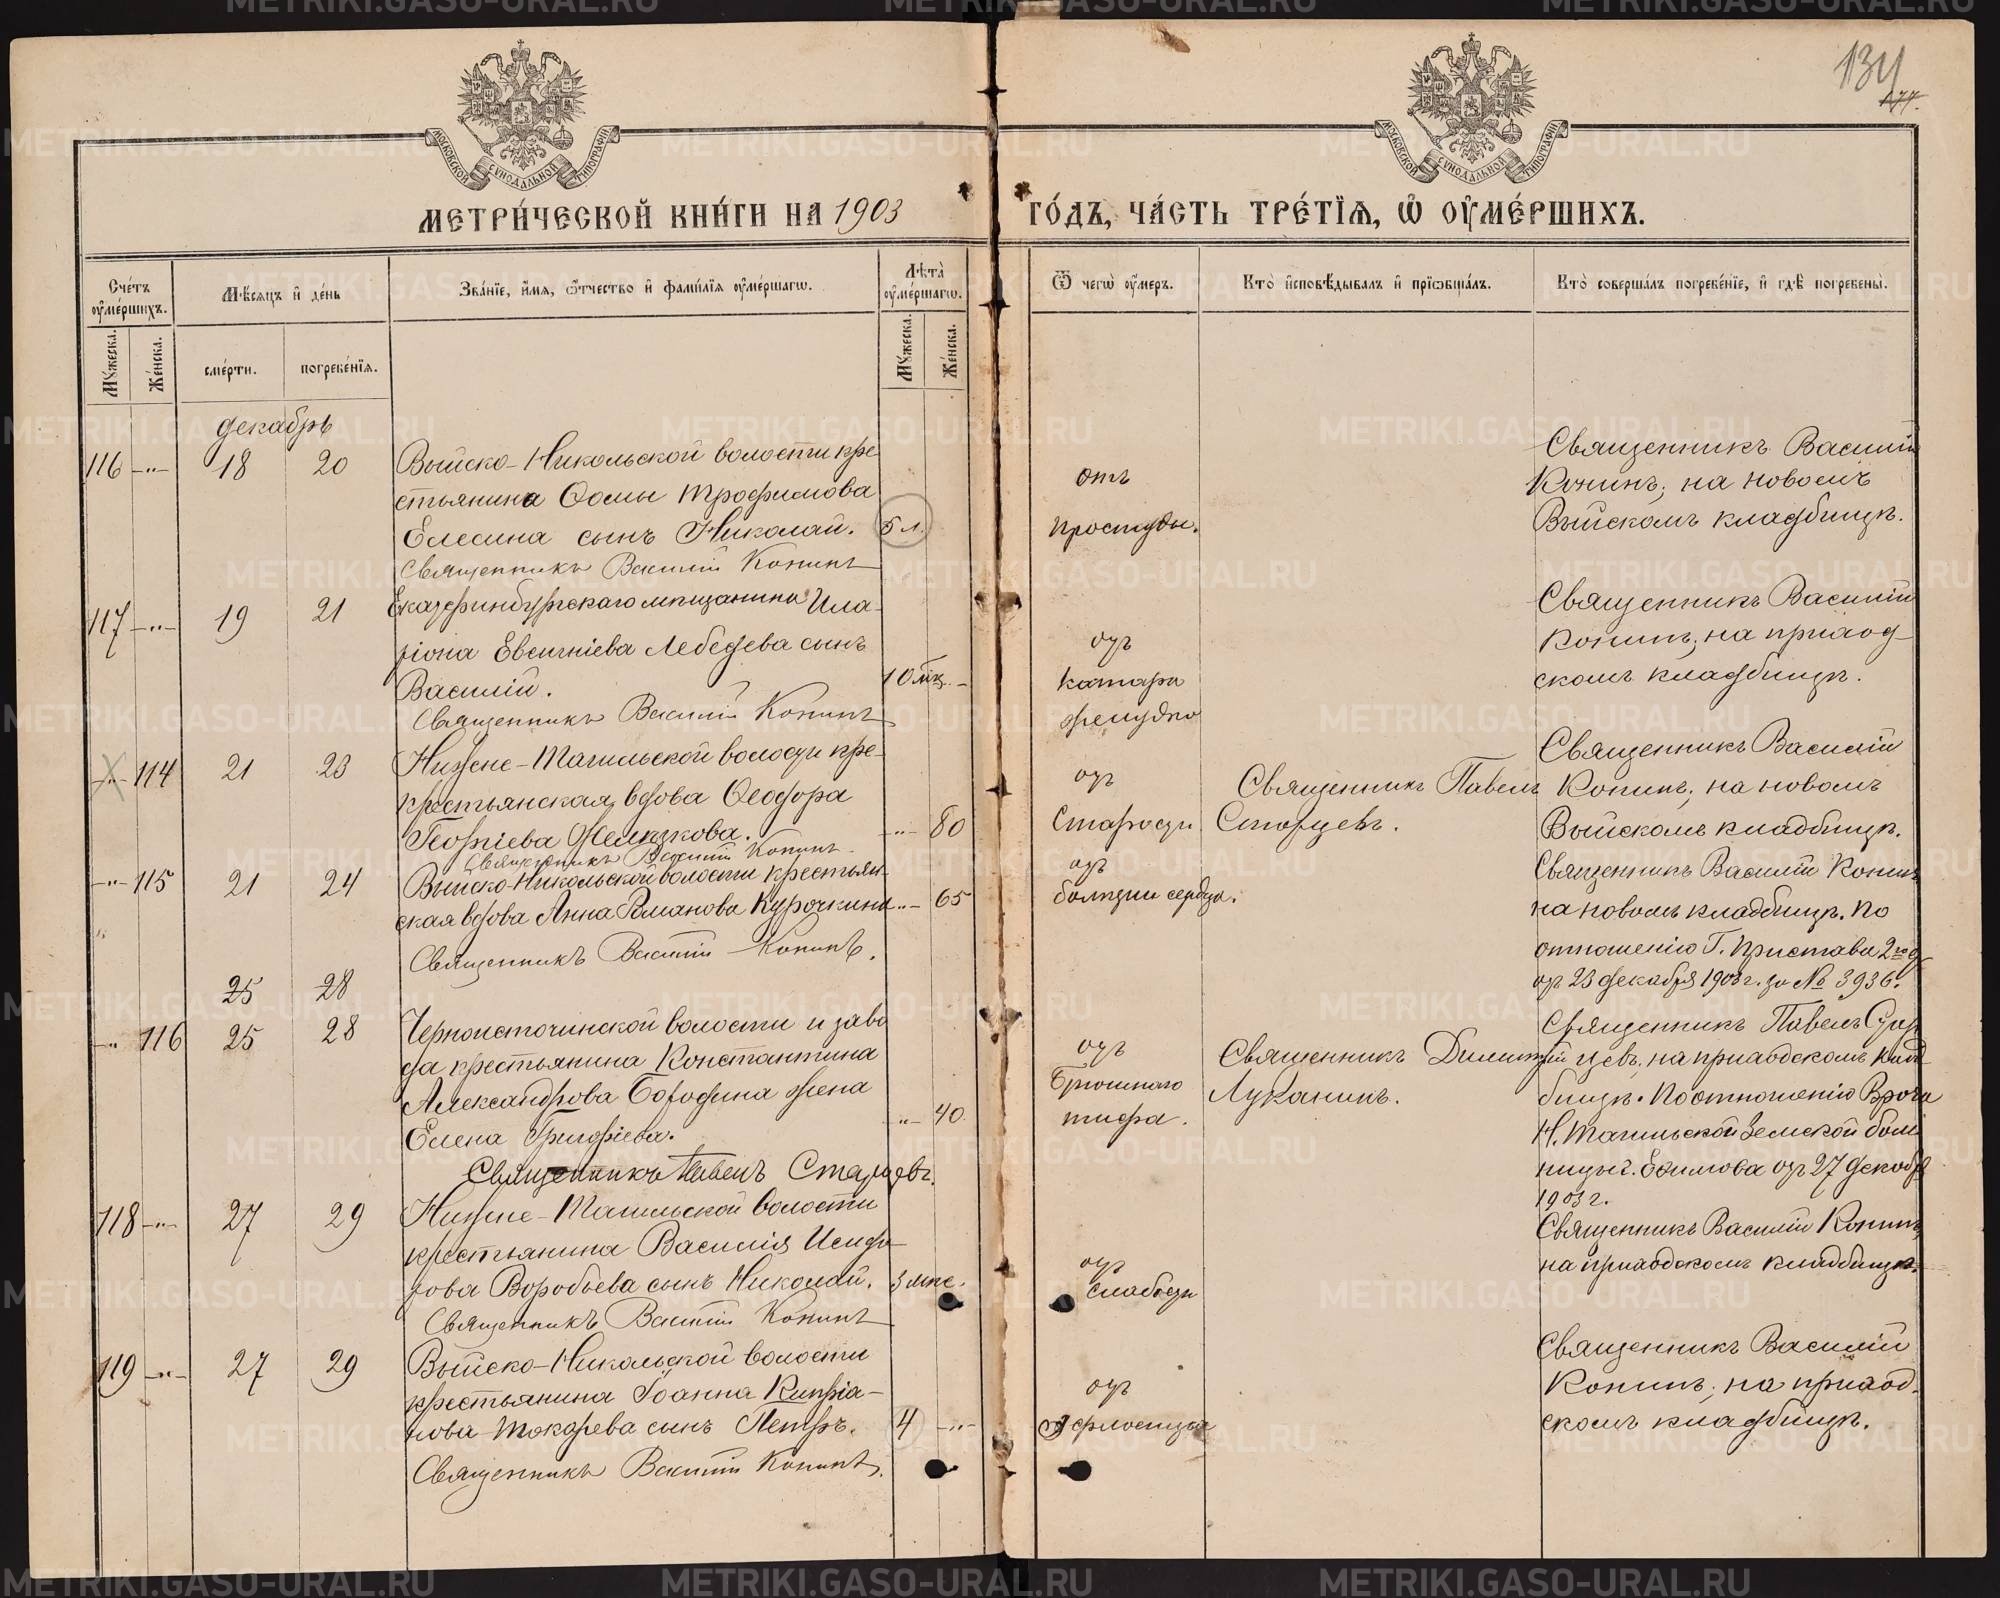 134
177.
МОСКОВСКОЙ СѴНОДАЛЬНОЙ ТИПОГРАФІИ
МОСКОВСКОЙ СѴНОДАЛЬНОЙ ТИПОГРАФІИ
МЕТРИ́ЧЕСКОЙ КНИ́ГИ НА 1903 ГО́ДЪ, ЧА́СТЬ ТРЕ́ТІѦ, Ѡ҆ ОУ҆МЕ́РШИХЪ.
Сче́тъ оу҆ме́ршихъ.
Мꙋ́жеска.
Же́нска.
Мѣ́сѧцъ и҆ де́нь
сме́рти.
погребе́нїѧ.
Зва́нїе, и҆́мѧ, ѻ҆́тчество и҆ фами́лїѧ оу҆ме́ршагѡ.
Лѣ́та оу҆ме́ршагѡ.
Мꙋ́жеска.
Же́нска.
Ѿ чегѡ̀ оу҆́меръ.
Кто̀ и҆сповѣ́дывалъ и҆ прїѡбща́лъ.
Кто̀ соверша́лъ погребе́нїе, и҆ гдѣ̀ погребены̀.
декабрь
116 -„- 18 20
Выйско-Никольской волости кре
стьянина Ѳомы Трофимова
Елесина сынъ Николай. 5 л.
Священникъ Василій Конинъ
отъ
простуды.
Священникъ Василій
Конинъ; на новомъ
Выйскомъ кладбищѣ.
117 -„- 19 21
Екатеринбургскаго мѣщанина Ила-
ріона Евсигніева Лебедева сынъ
Василій. 10 мц. -
Священникъ Василій Конинъ
отъ
катара
желудка
Священникъ Василій
Конинъ; на приход-
скомъ кладбищѣ.
-„- 114 21 23
Нижне-Тагильской волости кре-
крестьянская вдова Ѳеодора
Георгіева Желѣзкова. -„- 80
Священникъ Василій Конинъ
отъ
старости
Священникъ Павелъ
Старцевъ.
Священникъ Василій
Конинъ; на новомъ
Выйскомъ кладбищѣ.
-„- 115 21 24
Выйско-Никольской волости крестьян-
ская вдова Анна Романова Курочкина -„- 65
Священникъ Василій Конинъ.
отъ
болѣзни сердца.
Священникъ Василій Конинъ
на новомъ кладбищѣ. По
отношенію Г. Пристава 2го
отъ 23 декабря 1903 г. за № 3936.
25 28
-„ 116 25 28
Черноисточинской волости и заво
да крестьянина Константина
Александрова Бородина жена
Елена Григоріева. -„- 40.
Священникъ Павелъ Старцевъ.
отъ
Брюшного
тифа.
Священникъ Димитрій
Луканинъ.
Священникъ Павелъ Стар
цевъ; на приходскомъ клад
бищѣ. По отношенію Врача
Н. Тагильской Земской боль
ницы г. Ефимова отъ 27 декабр
1903 г.
118 -„- 27 29
Нижне-Тагильской волости
крестьянина Василія Исидо-
рова Воробьева сынъ Николай. 3 мѣс.
Священникъ Василій Конинъ
отъ
слабости
Священникъ Василій Конинъ,
на приходскомъ кладбищѣ.
119 -„- 27 29
Выйско-Никольской волости
крестьянина Іоанна Кипріа-
нова Токарева сынъ Петръ. 4 -„-
Священникъ Василій Конинъ.
отъ
Священникъ Василій
Конинъ; на приход.
скомъ кладбищѣ.
METRIKI.GASO-URAL.RU